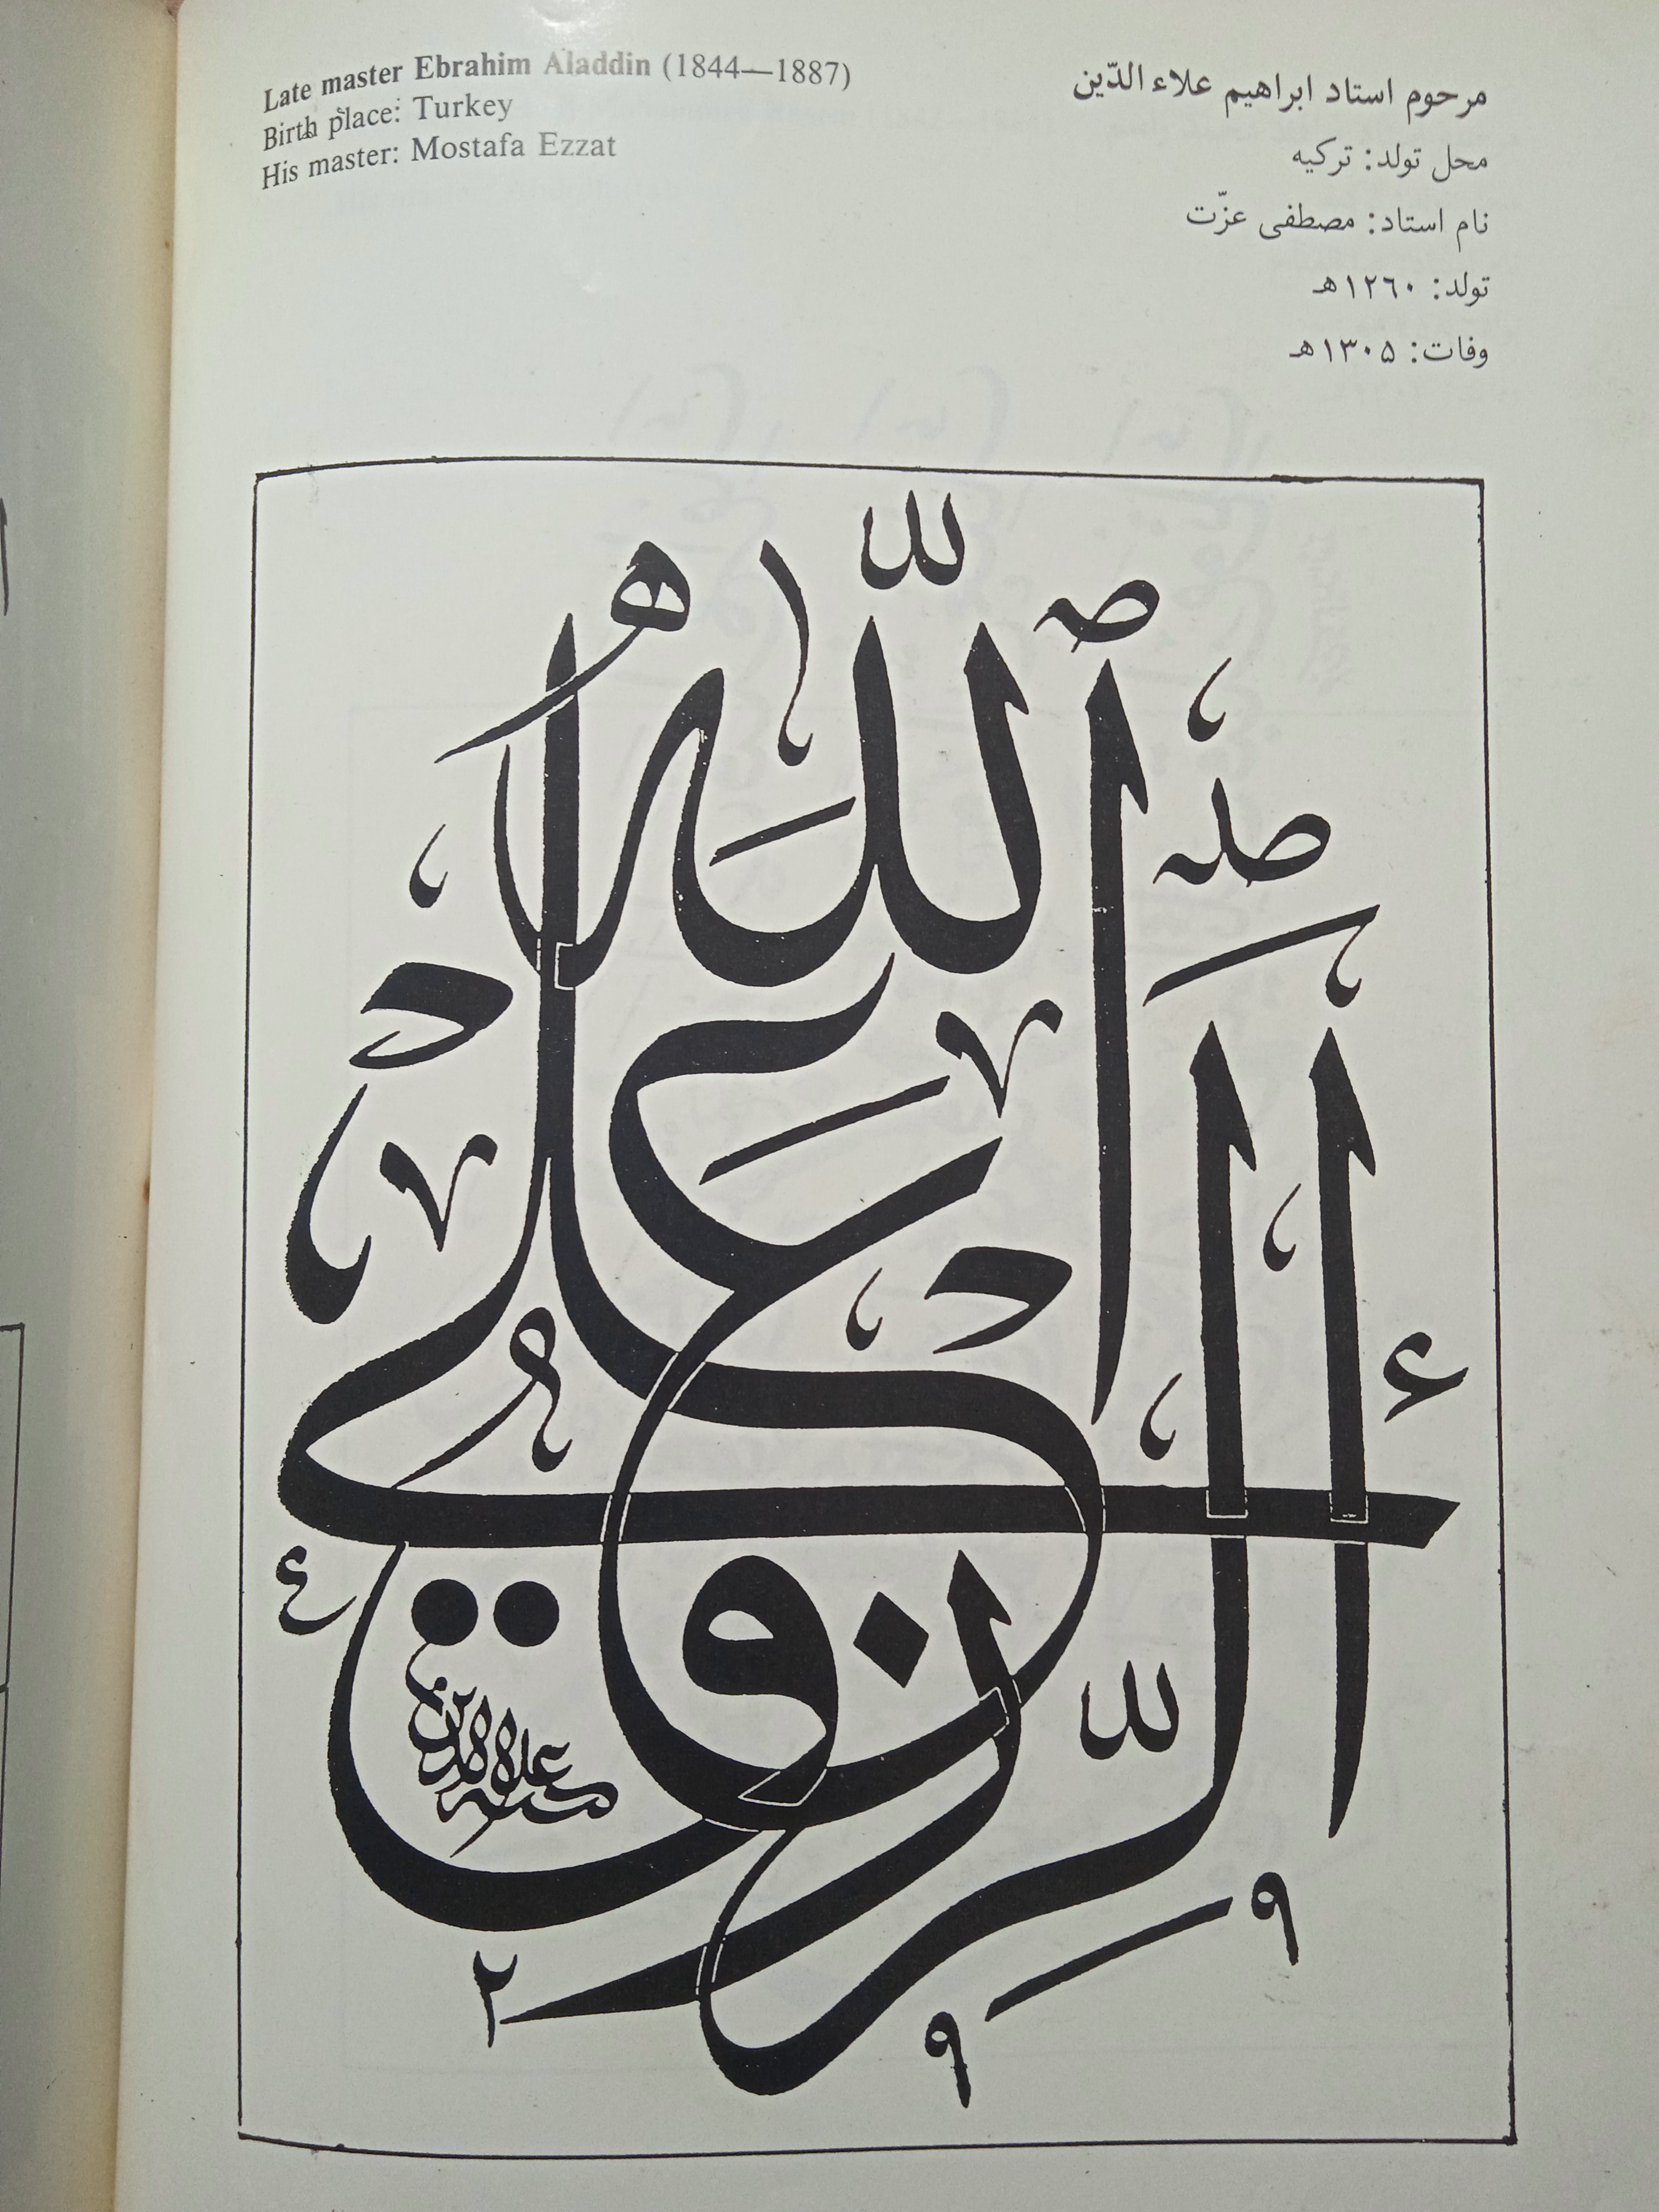 Late master Ebrahim Aladdin (1844—1887)
Birth place: Turkey
His master: Mostafa Ezzat
مرحوم استاد ابراهیم علاء الدّین
محل تولد: ترکیه
نام استاد: مصطفی عزّت
تولد: ١٢٦٠هـ
وفات: ١٣٠۵هـ
الرزق على الله
علاء الدين